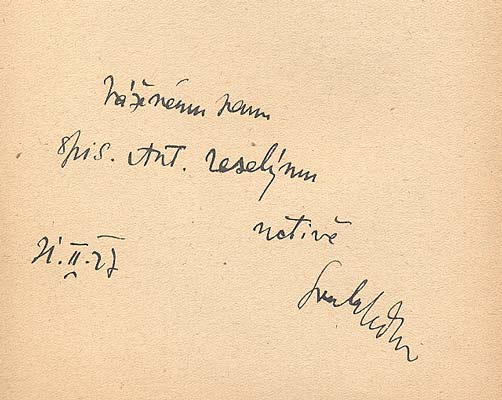 Váženému panu
spis. Ant. Veselýmu
uctivě
21.II.27